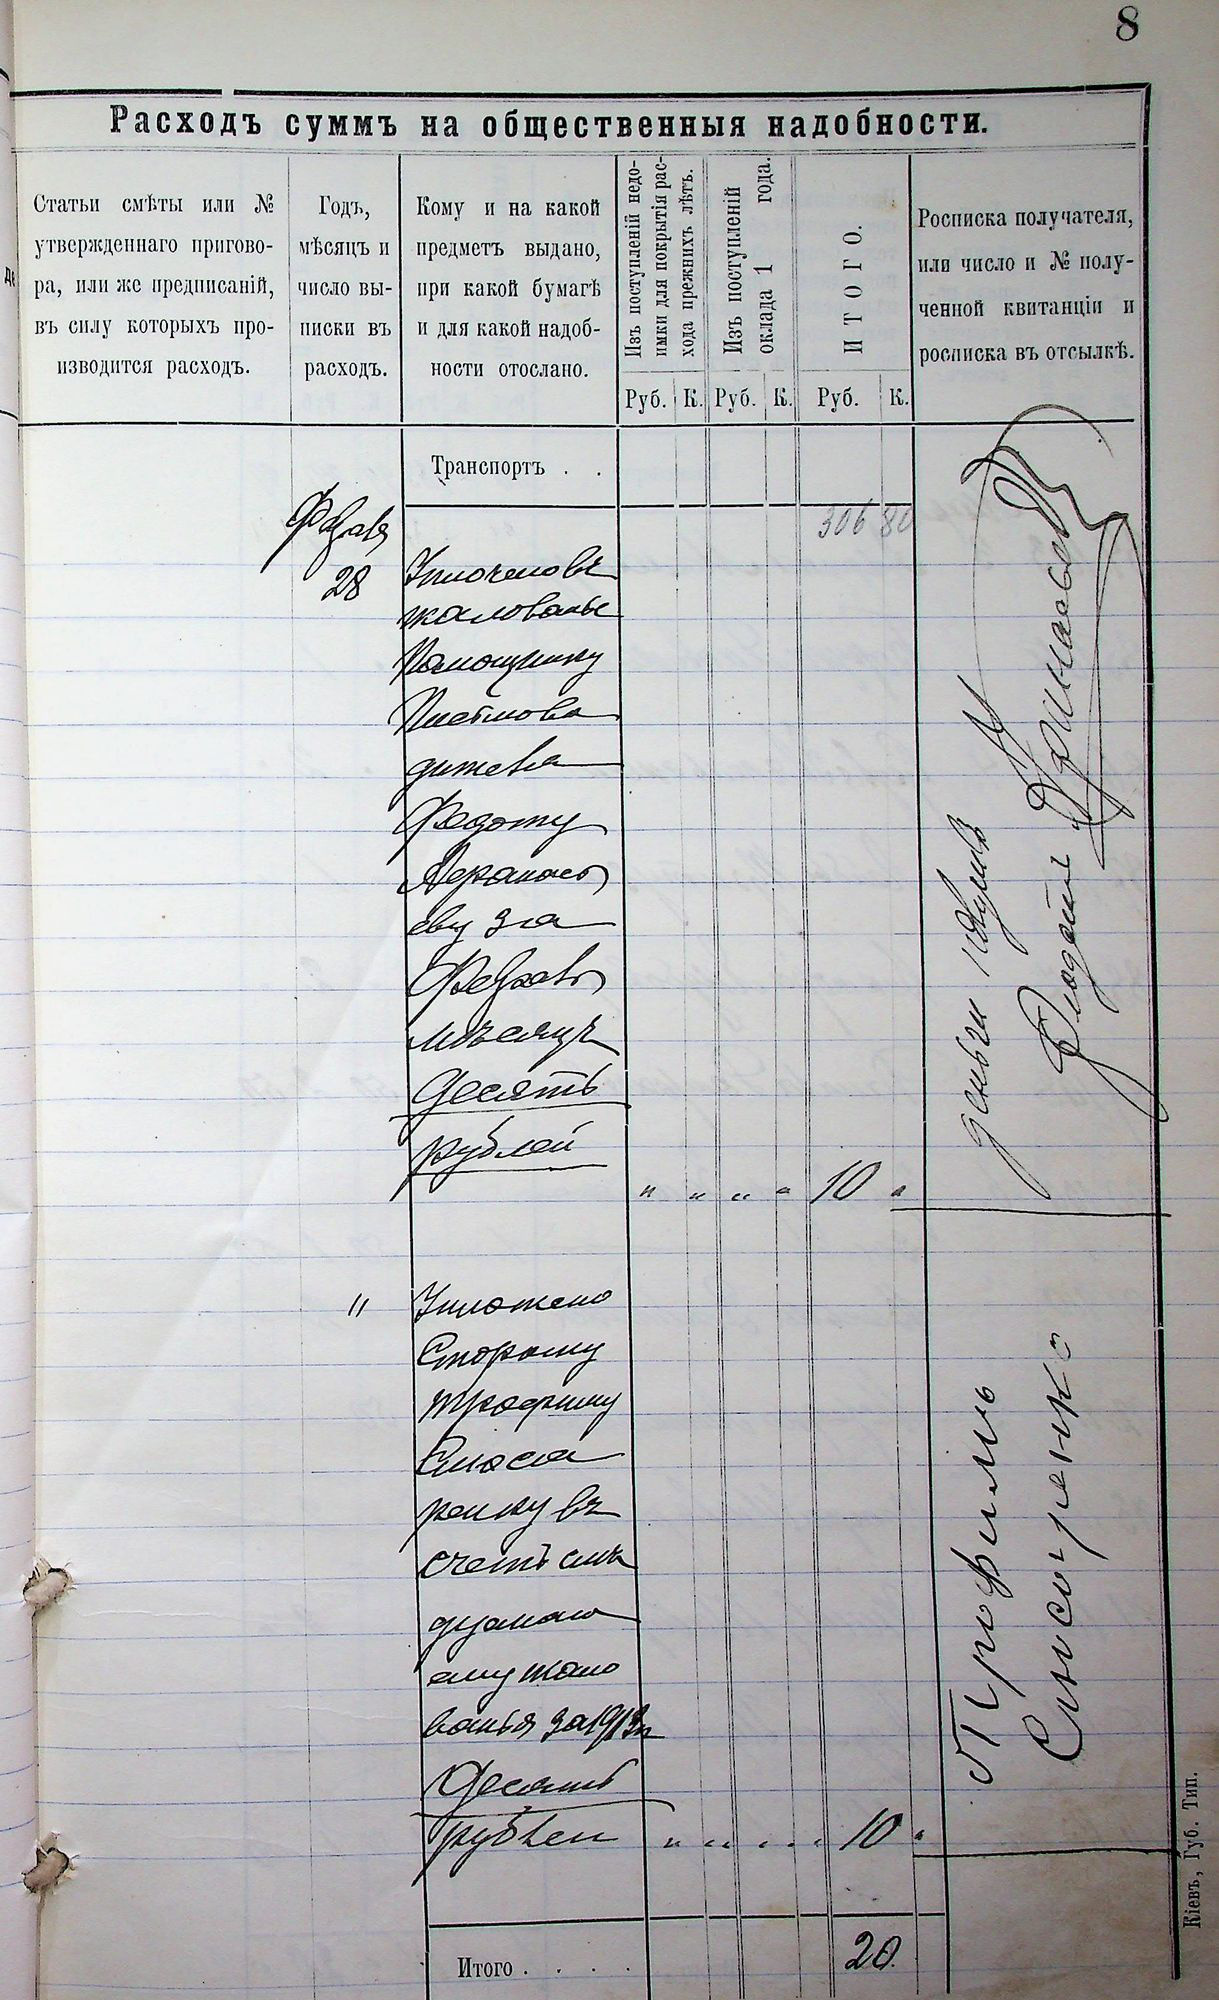 8
Расходъ суммъ на общественныя надобности.
Статьи смѣты или №
утвержденнаго пригово-
ра, или же предписаній,
въ силу которыхъ про-
изводится расходъ.
Годъ,
мѣсяцъ и
число вы-
писки въ
расходъ.
Кому и на какой
предметъ выдано,
при какой бумагѣ
и для какой надоб-
ности отослано.
Изъ поступленій недо-
имки для покрытія рас-
хода прежнихъ лѣтъ.
Изъ поступленій
оклада 1 года.
ИТОГО.
Росписка получателя,
или число и № полу-
ченной квитанціи и
росписка въ отсылкѣ.
Руб. К. Руб. К. Руб. К.
Транспортъ . .
306 80
28
жалованье
Помощнику
Федоту
еву за
мѣсяцъ
Десять
рублей
" " " " 10 "
деньги
" Уплочено
Сторожу
Трофиму
ренку въ
счетъ
ему жало
ванья за 1913 г
Десять
" " " " 10 "
Трофимъ
Итого . . . . 20.
Кіевъ, Губ. Тип.